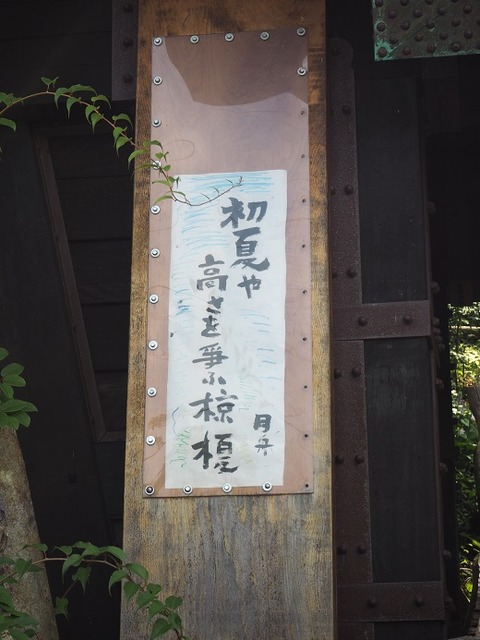 初夏や
高さを争ふ椋榎
月舟